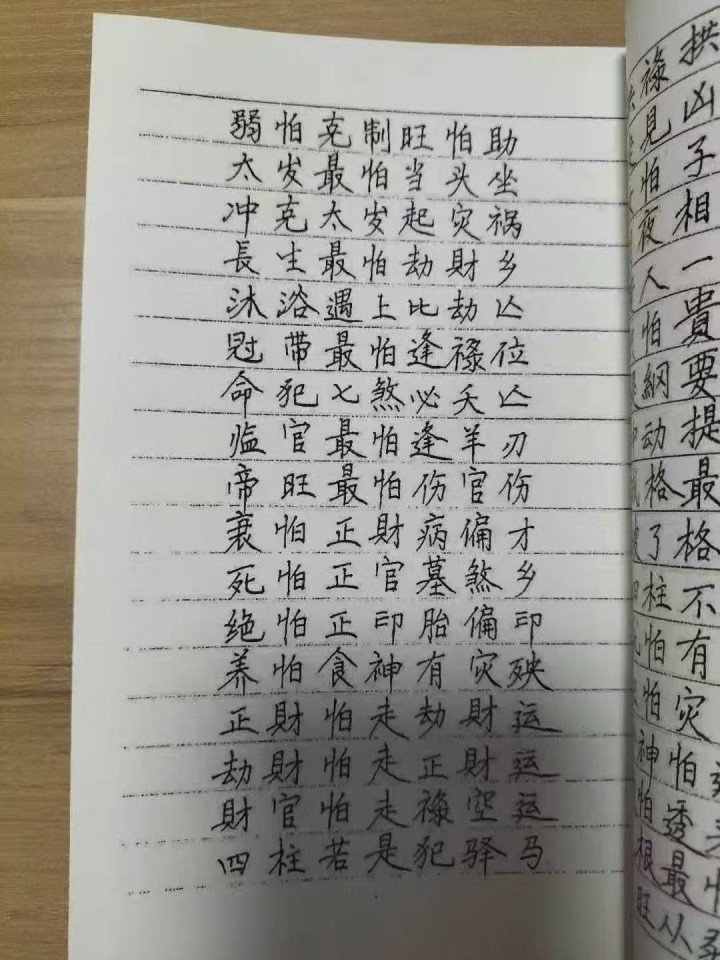 弱怕克制旺怕助
太岁最怕当头坐
冲克太岁起灾祸
長生最怕劫財乡
沐浴遇上比劫亾
冠带最怕逢禄位
命犯七煞必夭亾
临官最怕逢羊刃
帝旺最怕伤官伤
衰怕正財病偏才
死怕正官墓煞乡
绝怕正印胎偏印
养怕食神有灾殃
正財怕走劫財运
劫財怕走正財运
財官怕走禄空运
四柱若是犯驿马
禄拱
見凶
怕子
夜相
人一
怕貴
綱要
动提
格最
了格
柱不
怕有
怕灾
神怕
怕透
根最
旺从